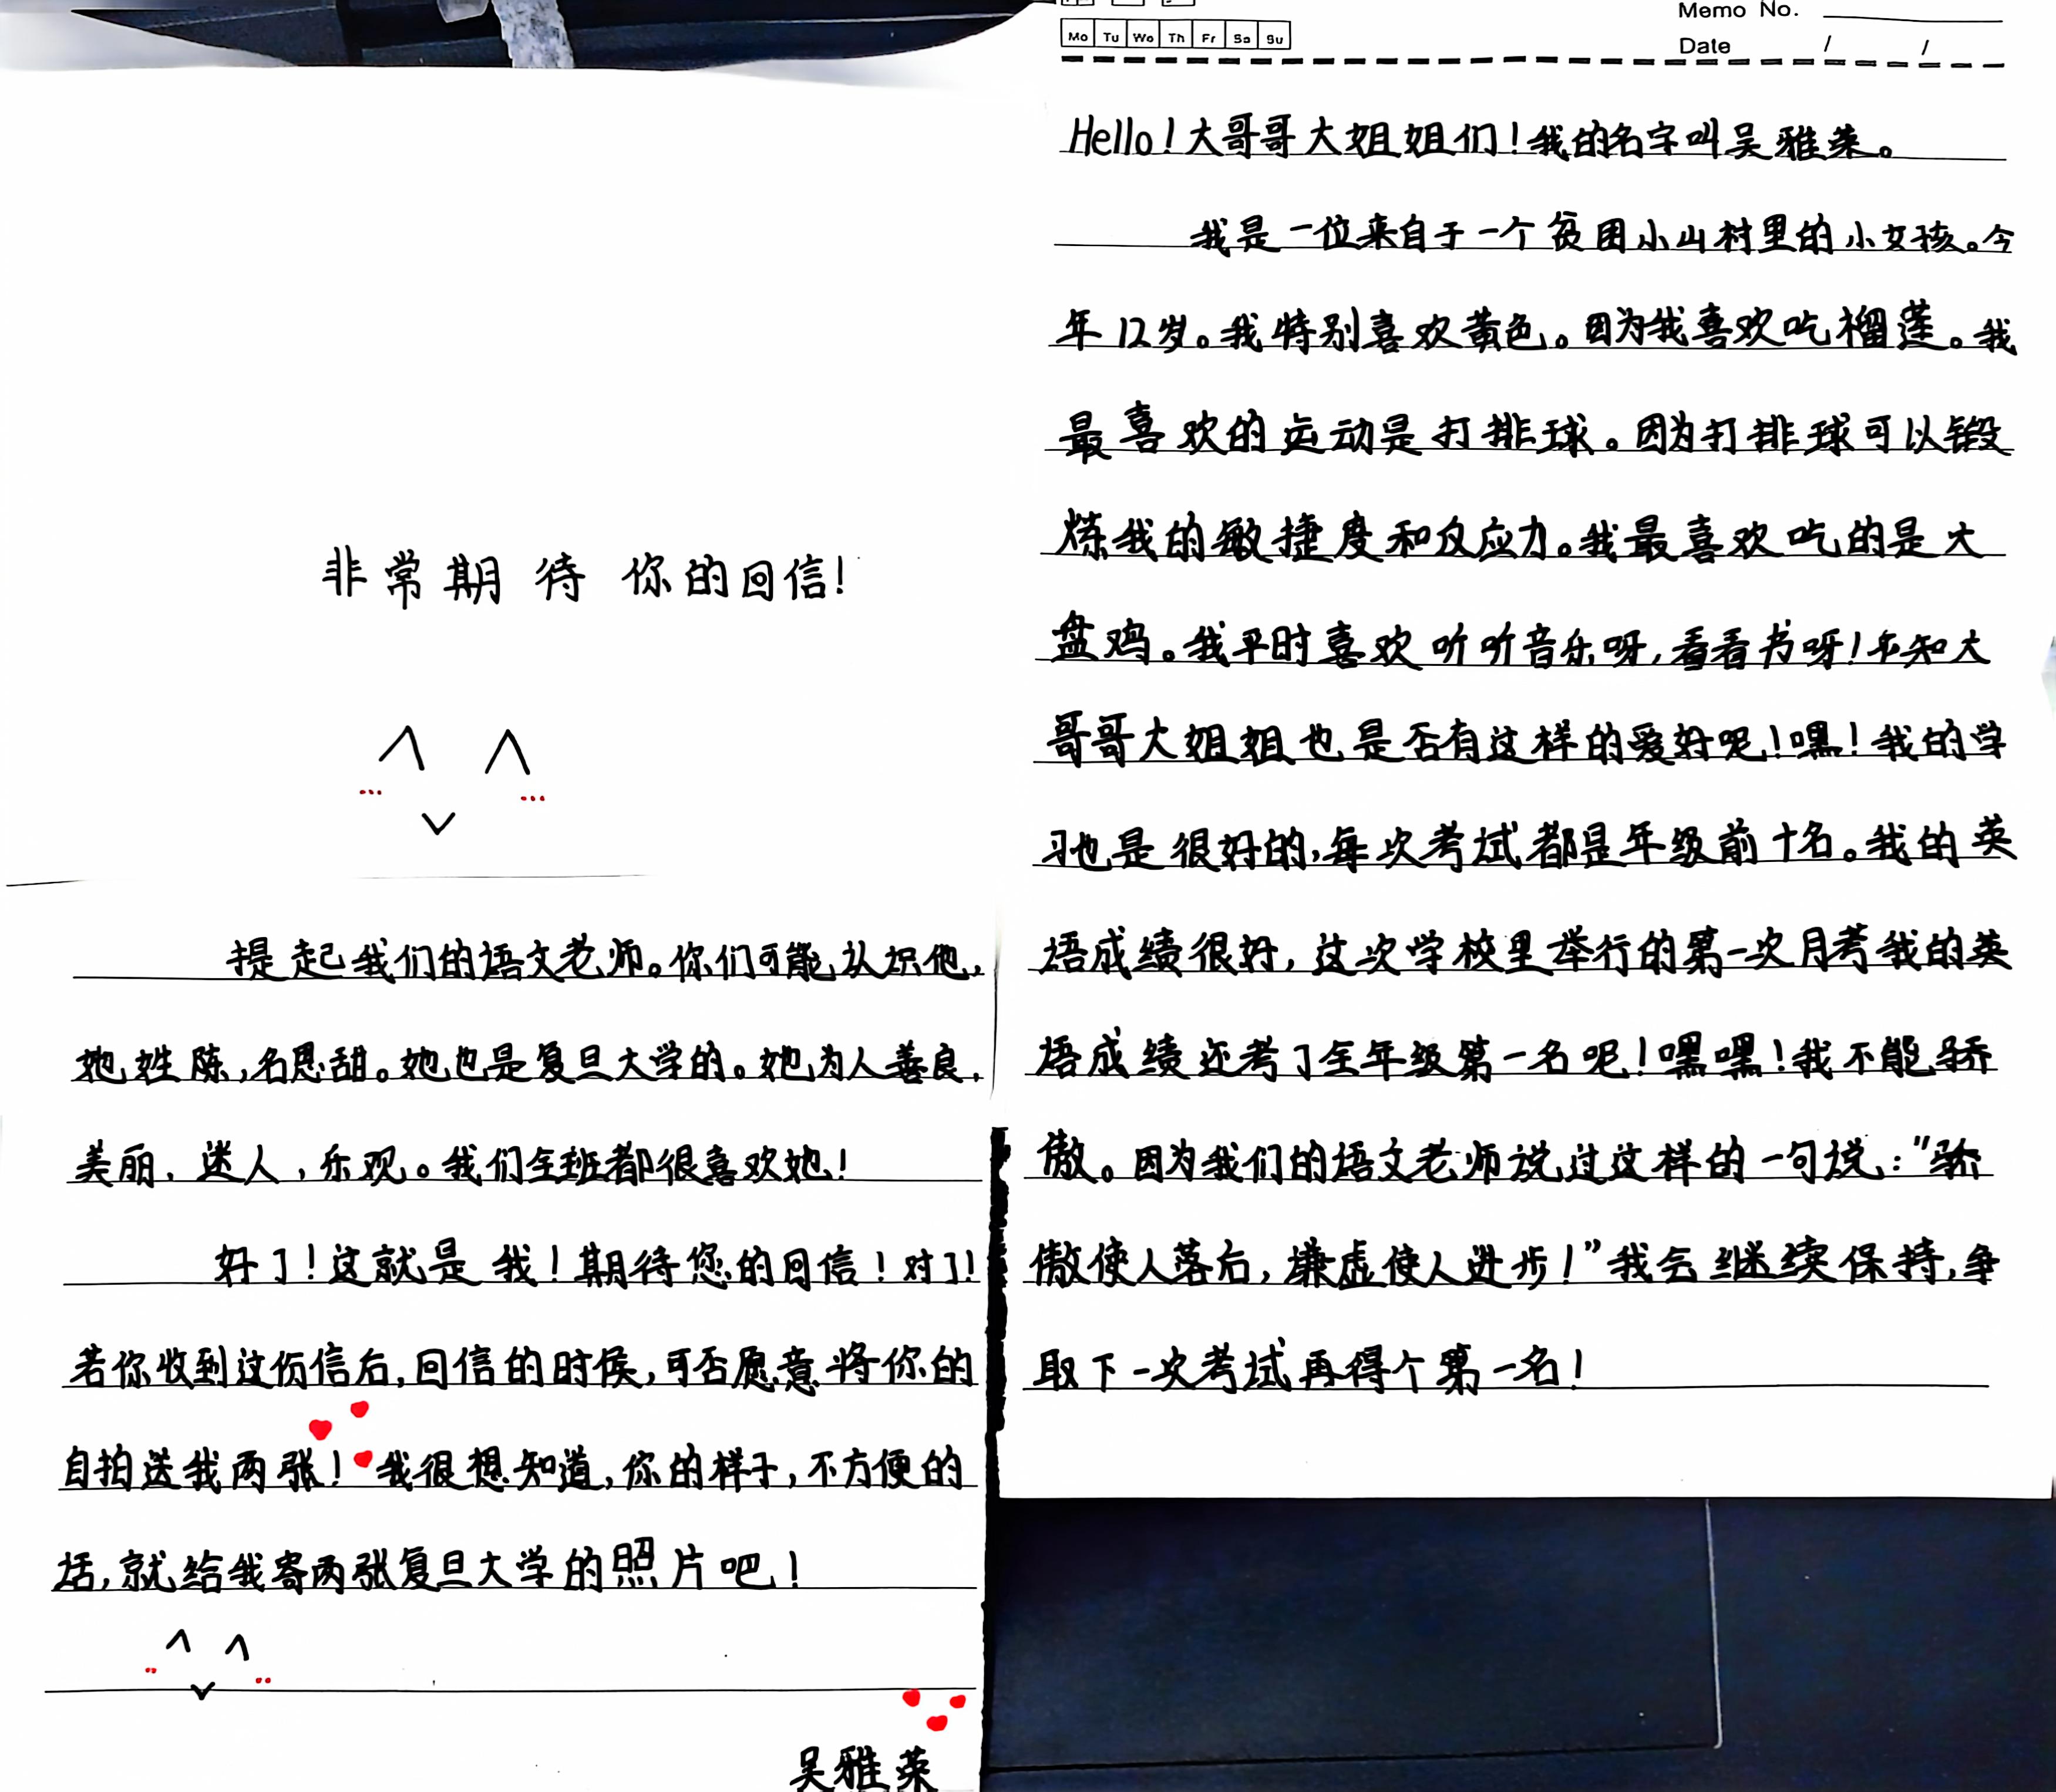 Mo Tu Wo Th Fr Sa Su
Memo No.
Date / /
Hello！大哥哥大姐姐们！我的名字叫吴雅荣。
我是一位来自于一个贫困小山村里的小女孩。今
年12岁。我特别喜欢黄色。因为我喜欢吃榴莲。我
最喜欢的运动是打排球。因为打排球可以锻
炼我的敏捷度和反应力。我最喜欢吃的是大
盘鸡。我平时喜欢听听音乐呀，看看书呀！不知大
哥哥大姐姐也是否有这样的爱好呢！嘿！我的学
习也是很好的，每次考试都是年级前十名。我的英
语成绩很好，这次学校里举行的第一次月考我的英
语成绩还考了全年级第一名呢！嘿嘿！我不能骄
傲。因为我们的语文老师说过这样的一句说：“骄
傲使人落后，谦虚使人进步！”我会继续保持，争
取下一次考试再得个第一名！
提起我们的语文老师。你们可能认识他，
她姓陈，名思甜。她也是复旦大学的。她为人善良，
美丽、迷人，乐观。我们全班都很喜欢她！
好了！这就是我！期待您的回信！对了！
若你收到这份信后，回信的时候，可否愿意将你的
自拍送我两张！我很想知道，你的样子，不方便的
话，就给我寄两张复旦大学的照片吧！
吴雅荣
非常期待你的回信！